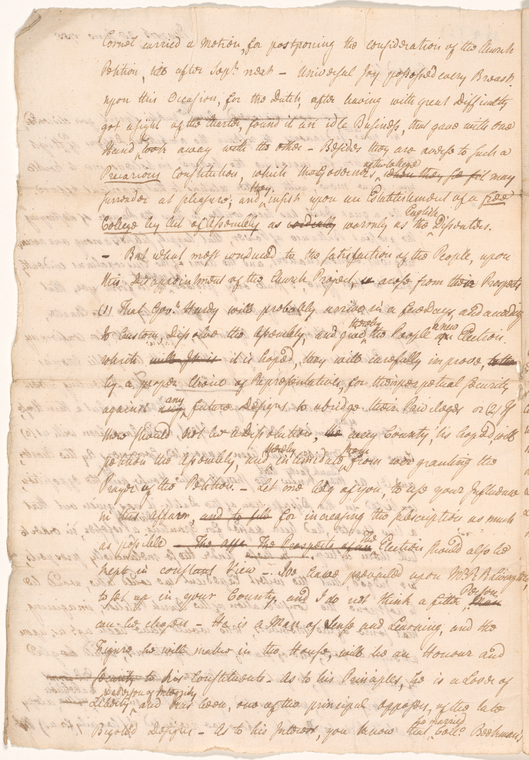 Cornel carried a Motion, for postponing the consideration of the Church
Petition, till after Sept. next – Universal Joy possessed every Breast
upon this Occasion, for the Dutch, after having with great Difficulty
got a sight of the Charter, found it an idle Business, that gave with one
Hand, & took away with the other – Besides they are averse to such a
Precarious Constitution, which the Governor, when they, or his may
surrender at pleasure; and they insist upon an Establishment of a Free
College by Act of Assembly as cordially warmly as the English Dissenters.
– But what most conduced to the Satisfaction of the People, upon
this Disappointment of the Church Project, is arose from their Prospects
(1) That Govr. Hardy will probably arrive in a few Days, and according
to Custom, dissolve the Assembly, and thereby give the People a new Election
which it is hoped, they will carefully improve,
by a proper Choice of Representatives, for their perpetual Security
against any future Designs to abridge their Privileges or (2) If
there should not be a Dissolution, every County 'tis hoped will
petition the Assembly, and thereby intimidate them from ever granting the
Prayer of the Petition. – Let me beg of you, to use your Influence
in this alarm, for increasing the subscription as much
as possible The Election should also be
kept in constant View – We have prevailed upon Mr. R. Livingston,
to set up in your County, and I do not think a fitter Person than
can be chosen – He is a Man of Sense and Learning, and the
Figure he will make in the House, will be an Honour and
Security to his Constituents. As to his Principles, he is a Lover of
Liberty, and has been, one of the principal opposers, of the late
Bigoted Designs – As to his Interest, you know that he married Coll. Beekman's